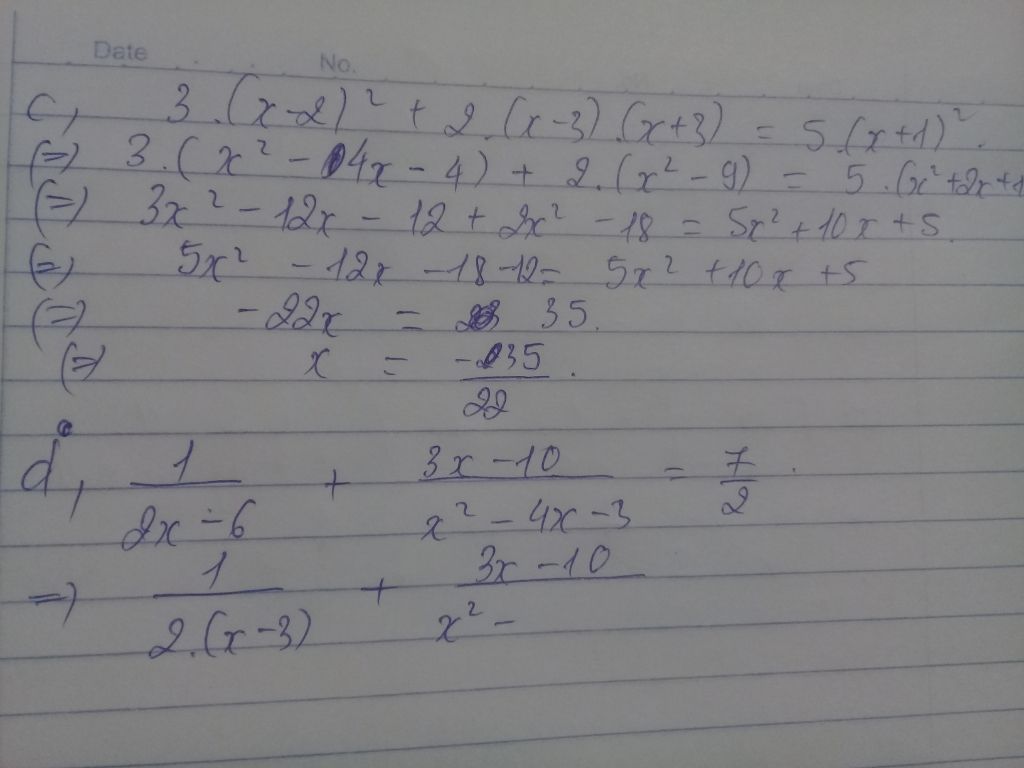 Date No.
c, 3.(x-2)² + 2.(x-3).(x+3) = 5.(x+1)².
(=) 3.(x² - 4x - 4) + 2.(x² - 9) = 5.(x²+2x+1
(=) 3x² - 12x - 12 + 2x² - 18 = 5x² + 10x + 5.
(=) 5x² - 12x - 18 - 12 = 5x² + 10x + 5
(=) -22x = 35.
(=) x = -35/22.
d, 1/(2x - 6) + (3x - 10)/(x² - 4x - 3) = 7/2.
=) 1/(2.(x-3)) + (3x - 10)/(x² -